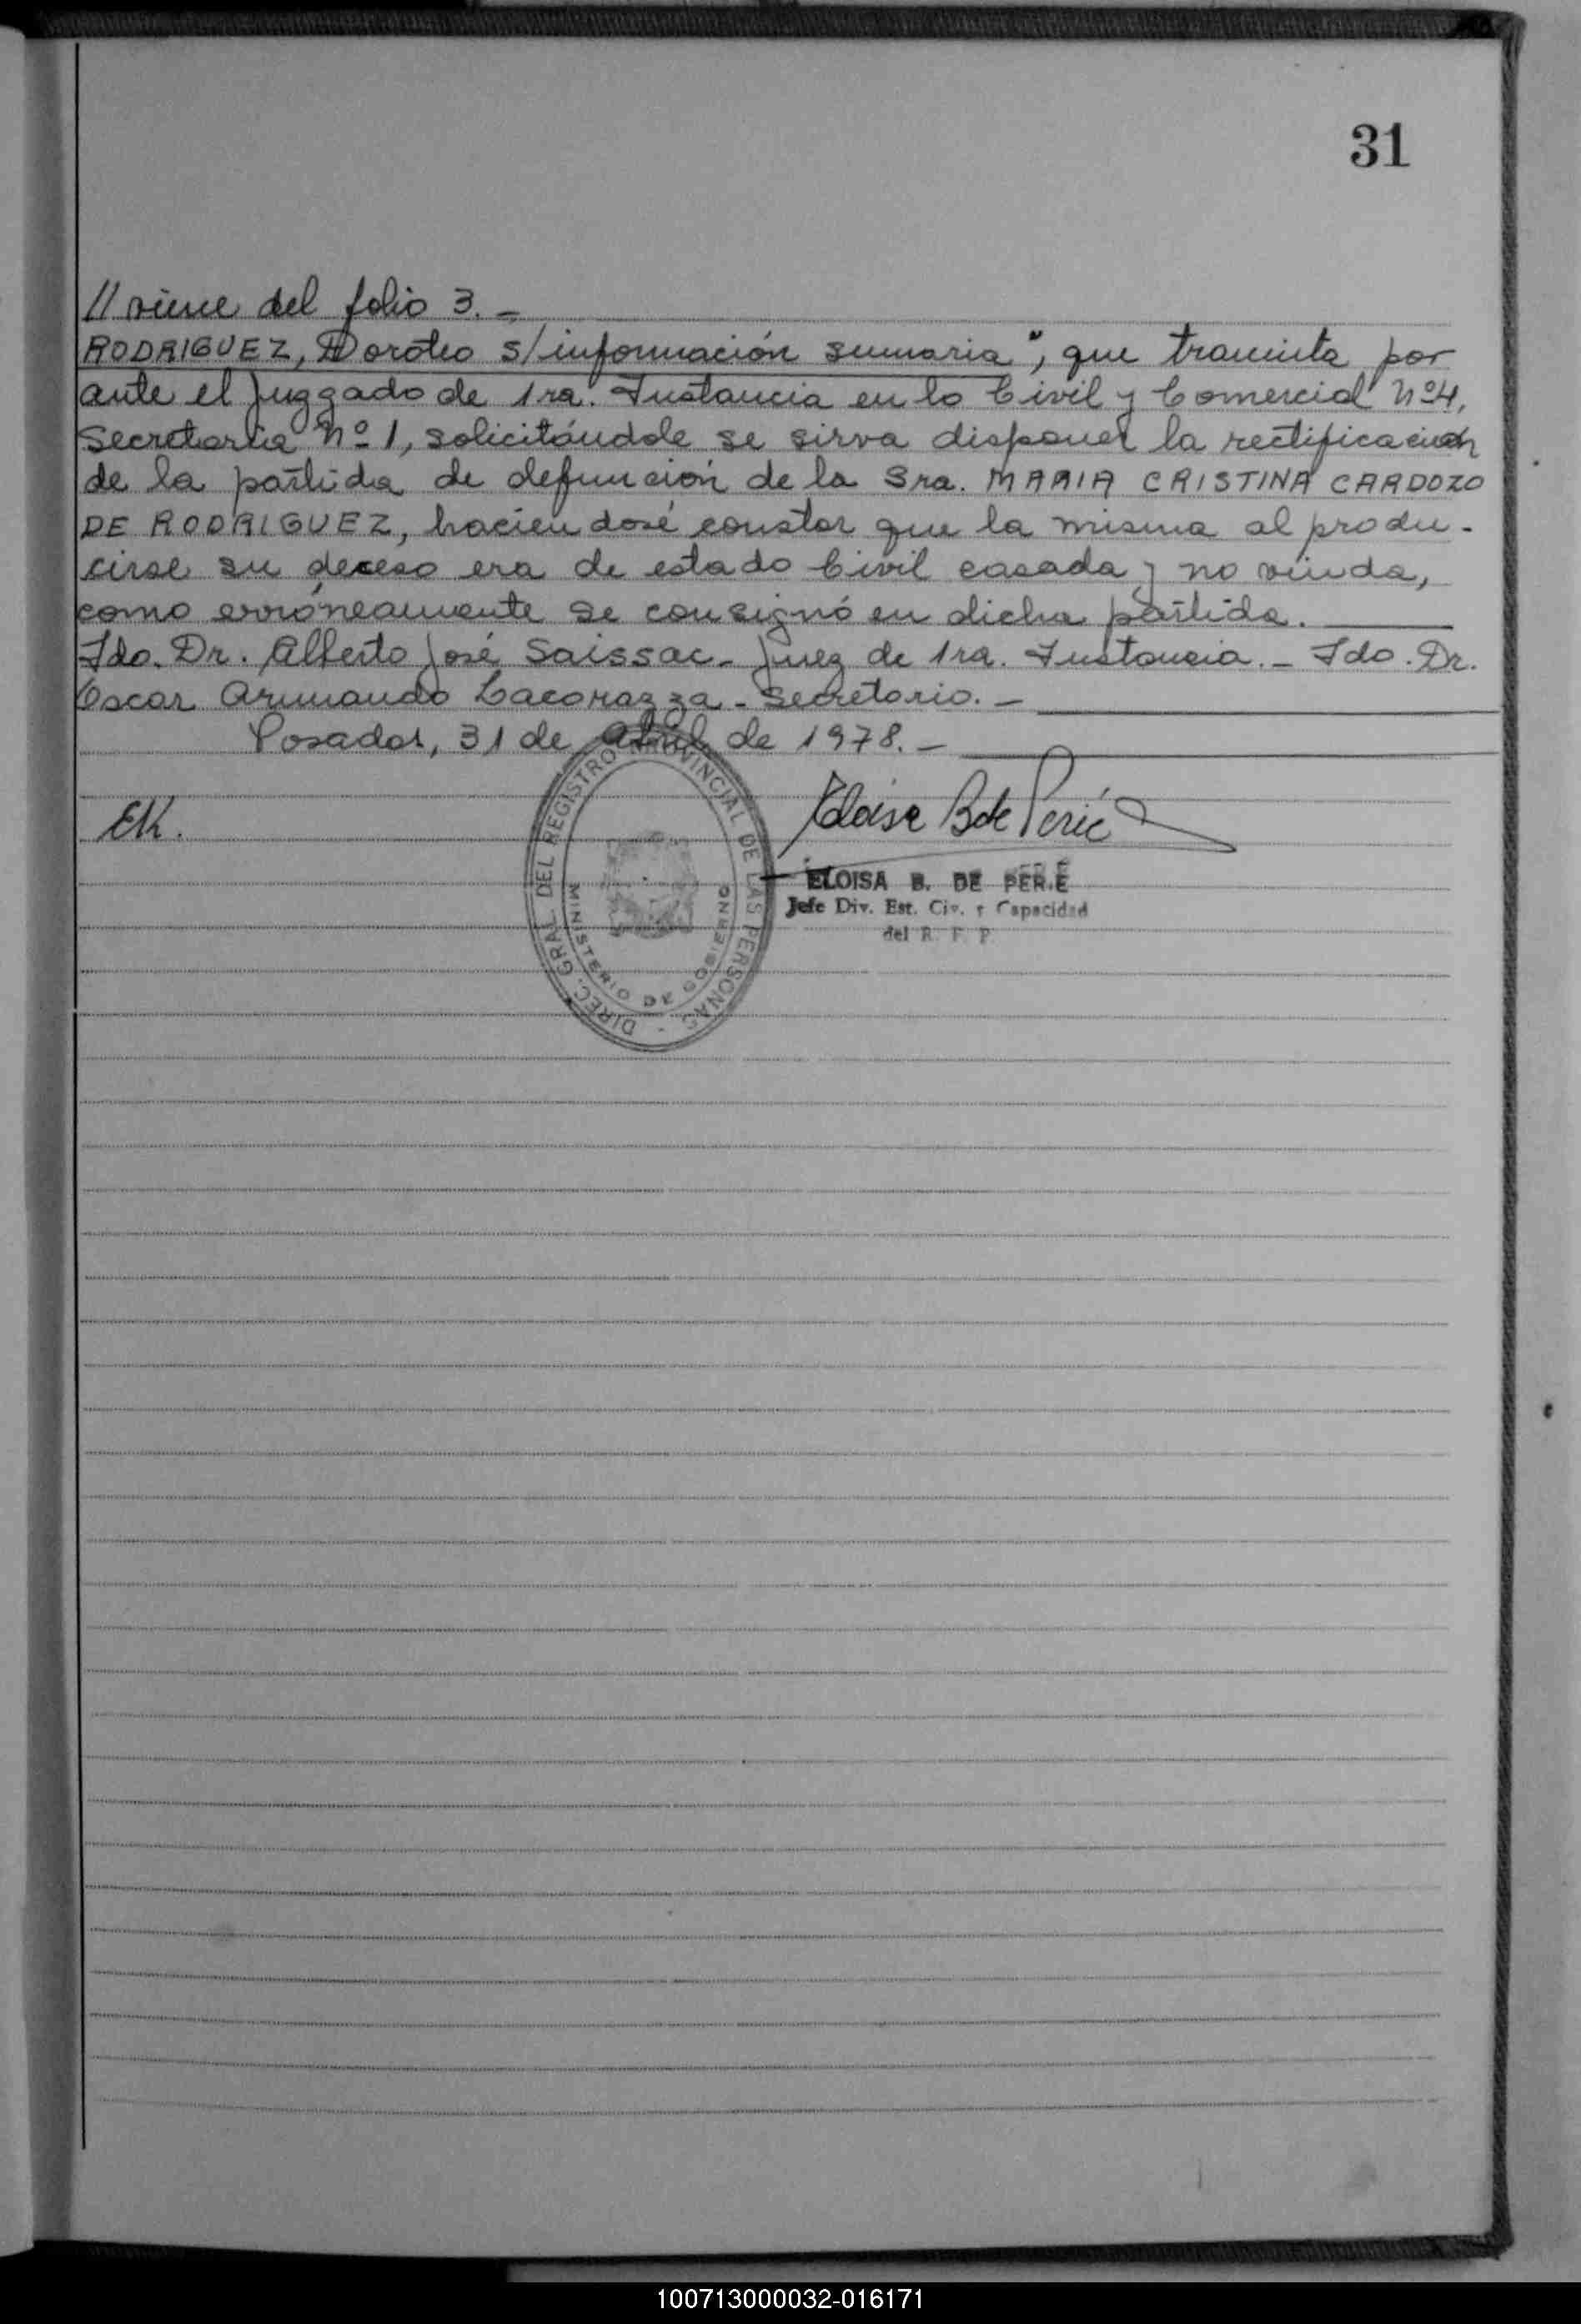 31
// viene del folio 3. -
RODRIGUEZ, Doroteo s/información sumaria", que tramita por
ante el Juzgado de 1ra. Instancia en lo Civil y Comercial nº4,
Secretaria nº 1, solicitándole se sirva disponer la rectificacion
de la partida de defunción de la Sra. MARIA CRISTINA CARDOZO
DE RODRIGUEZ, haciendosé constar que la misma al produ-
cirse su deceso era de estado Civil casada y no viuda,
como erróneamente se consignó en dicha partida.
Fdo. Dr. Alberto José Saissac - Juez de 1ra. Instancia. - Fdo. Dr.
Oscar Armando Lacorazza - Secretario. -
Posadas, 31 de Abril de 1978. -
EK.
Eloisa B de Perié
DIREC. GRAL. DEL REGISTRO PROVINCIAL DE LAS PERSONAS -
MINISTERIO DE GOBIERNO
ELOISA B. DE PERIE
Jefe Div. Est. Civ. y Capacidad
del R. P. P.
100713000032-016171